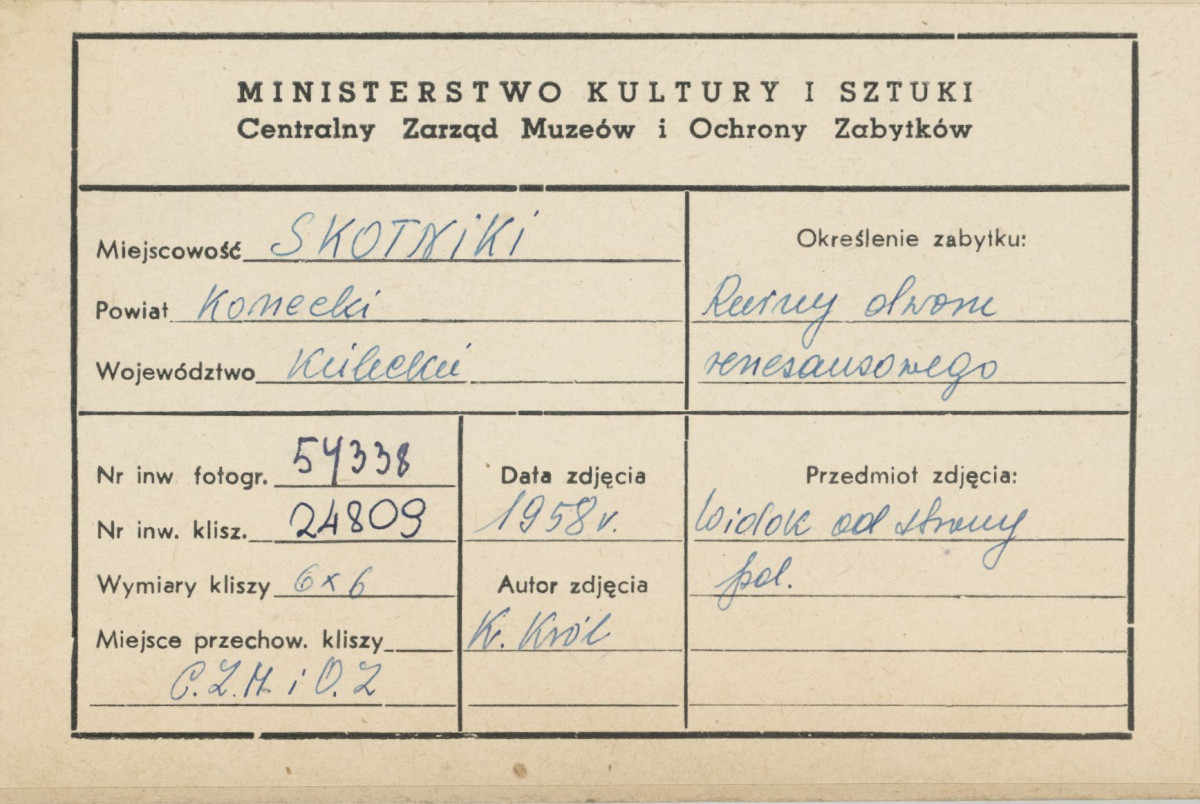 MINISTERSTWO KULTURY I SZTUKI
Centralny Zarząd Muzeów i Ochrony Zabytków
Miejscowość SKOTNIKI
Powiat Konecki
Województwo Kieleckie
Określenie zabytku:
Ruiny dworu
renesansowego
Nr inw fotogr. 54338
Nr inw. klisz. 24809
Wymiary kliszy 6x6
Miejsce przechow. kliszy
C.Z.M. i O.Z
Data zdjęcia
1958 r.
Autor zdjęcia
K. Król
Przedmiot zdjęcia:
Widok od strony
poł.